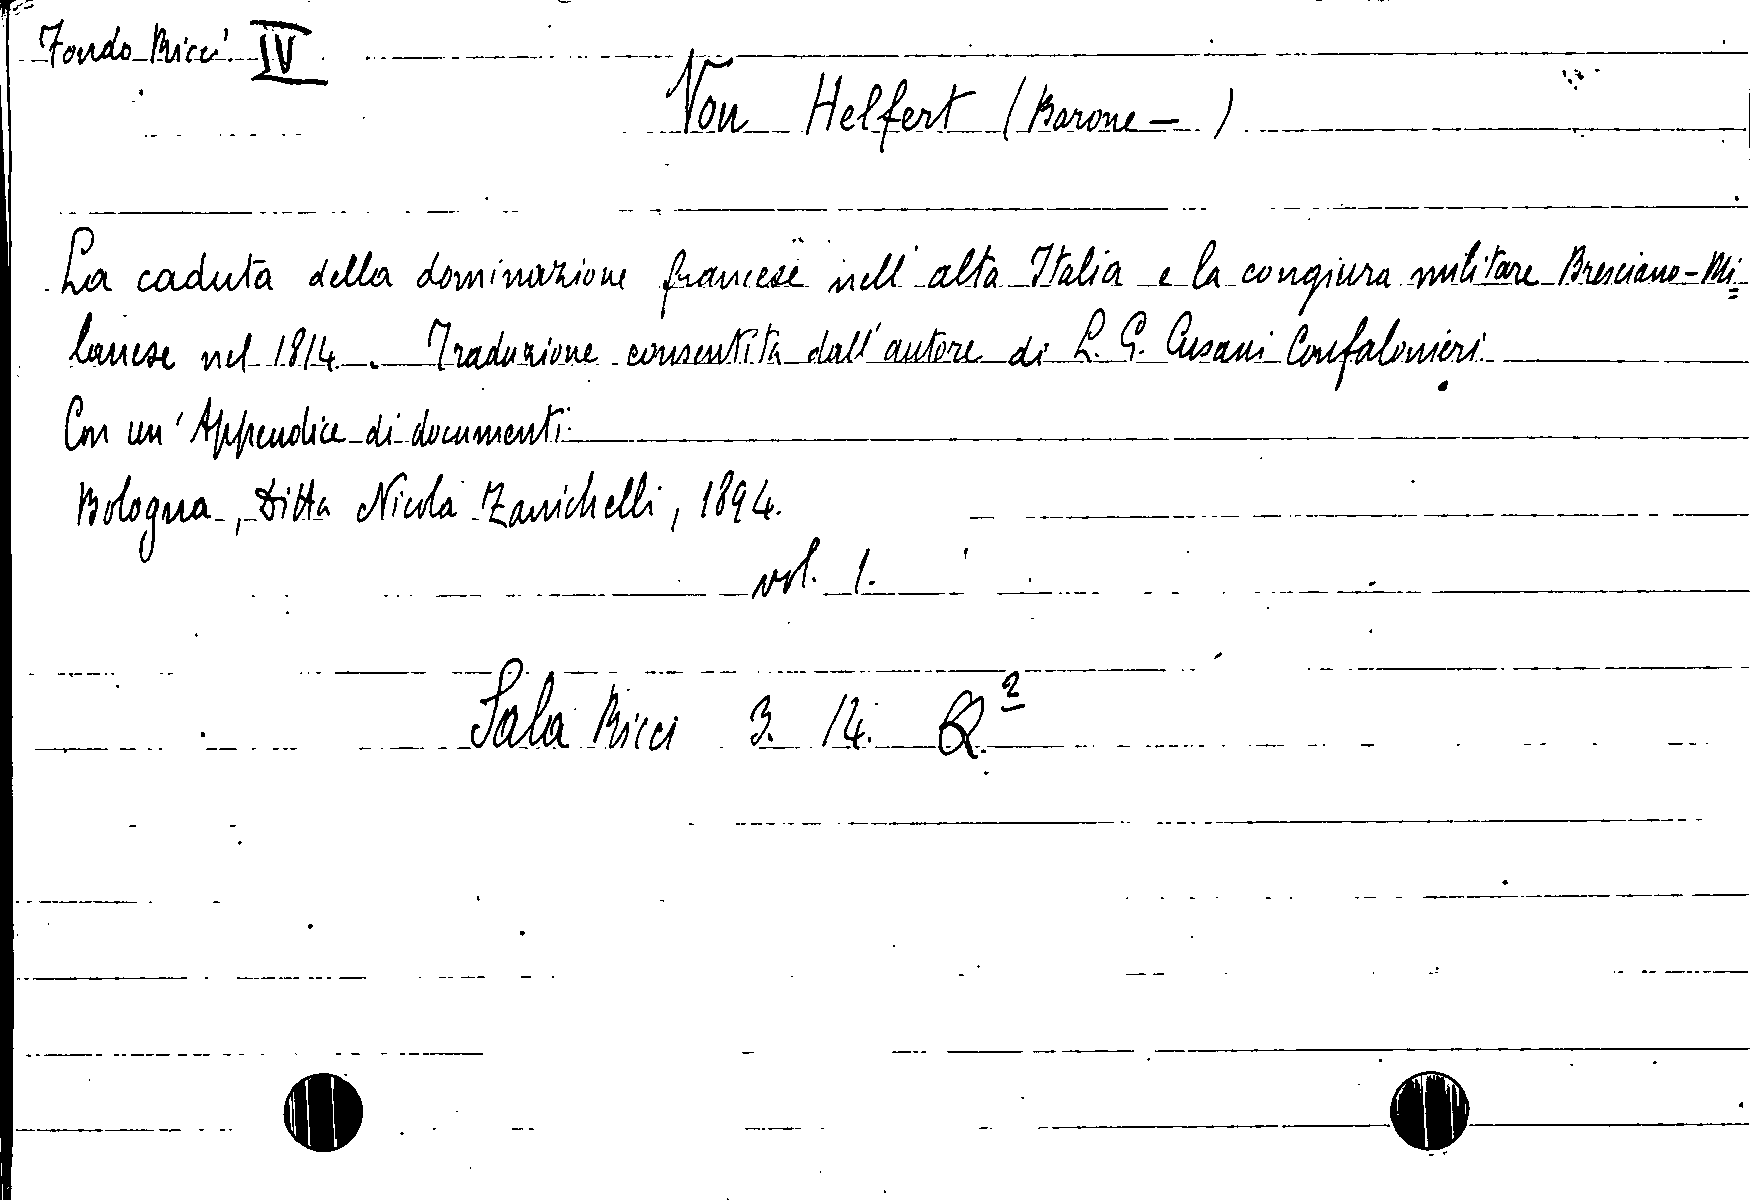 Fondo Ricci IV
Von Helfert (Barone — )
La caduta della dominazione francese nell'alta Italia e la congiura militare Bresciano-Mi=
lanese nel 1814. Traduzione consentita dall'autore di L. G. Cusani Confalonieri.
Con un'Appendice di documenti.
Bologna, Ditta Nicola Zanichelli, 1894.
vol. 1.
Sala Ricci 3. 14. Q.²